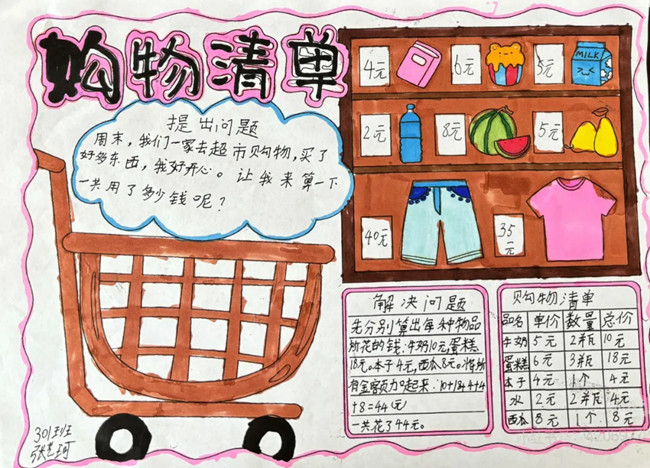 购物清单
提出问题
周末，我们一家去超市购物，买了
好多东西，我好开心。让我来算一下
一共用了多少钱呢？
4元 6元 5元
MILK
2元 8元 5元
40元 35元
解决问题
先分别算出每种物品
所花的钱：牛奶10元，蛋糕
18元。本子4元，西瓜8元。将所
有金额加起来：10+18+4+4
+8=44(元)
一共花了44元。
购物清单
品名 单价 数量 总价
牛奶 5元 2瓶 10元
蛋糕 6元 3瓶 18元
本子 4元 1个 4元
水 2元 2瓶 4元
西瓜 8元 1个 8元
301班